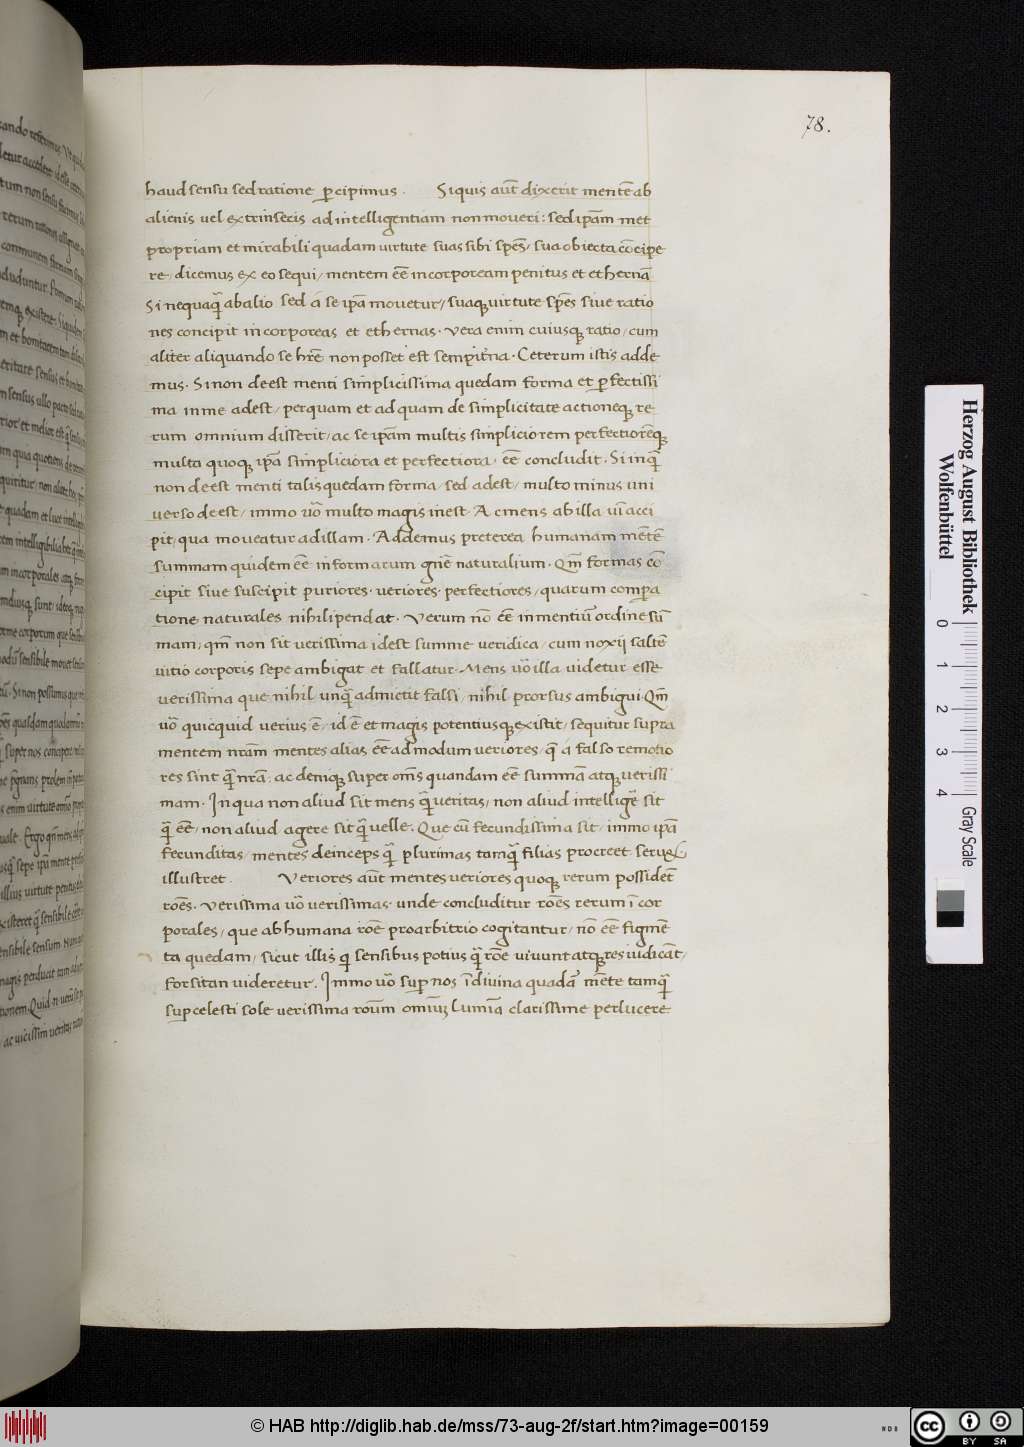 78.
haud sensu sed ratione p̱cipimus. Siquis aūt dixerit mentē ab
alienis uel extrinsecis ad intelligentiam non moueri: sed ip̄am met
propriam et mirabili quadam uirtute suas sibi sp̄es/ sua obiecta cōcipe
re dicemus ex eo sequi/ mentem eē incorpoream penitus et ethernā
Si nequaq̄ ab alio sed á se ip̄a mouetur/ suaq; uirtute sp̄es siue ratio
nes concipit incorporeas et ethernas. Vera enim cuiusq; ratio/ cum
aliter aliquando se hr̄e non posset est sempit̄na. Ceterum istis adde
mus. Si non deest menti simplicissima quedam forma et p̱fectissi
ma in me adest/ perquam et ad quam de simplicitate actioneq; re
rum omnium disserit/ ac se ip̄am multis simpliciorem perfectiorēq;
multa quoq; ip̄a simpliciora et perfectiora. eē concludit. Si inq̄
non deest menti talis quedam forma/ sed adest/ multo minus uni
uerso deest/ immo uō multo magis inest. Ac mens ab illa uī acci
pit/ qua moueatur ad illam. Addemus preterea humanam mētē
summam quidem eē in formarum gn̄e naturalium. Qm̄ formas cō
cipit siue suscipit puriores. ueriores. perfectiores/ quarum comp̱a
tione naturales nihilipendat. Verum nō eē in mentiū ordine sū
mam/ qm̄ non sit uerissima idest summe ueridica/ cum noxij saltē
uitio corporis sepe ambigat et fallatur. Mens uō illa uidetur esse
uerissima que nihil unq̄ admictit falsi/ nihil prorsus ambigui. Qm̄
uō quicquid uerius ē/ id ē et magis potentiusq; existit/ sequitur supra
mentem nr̄am mentes alias eē admodum ueriores/ q̄ á falso remotio
res sint q̄ nr̄a. ac deniq; super om̄s quandam eē summā atq; uerissi
mam. In qua non aliud sit mens q̄ ueritas/ non aliud intelligē sit
q̄ eē/ non aliud agere sit q̄ uelle. Que cū fecundissima sit/ immo ip̄a
fecunditas/ mentes deinceps q̄ plurimas tamq̄ filias procreet
illustret. Veriores aūt mentes ueriores quoq; rerum possidēt
rōes. Verissima uō uerissimas. unde concluditur rōes rerum ī cor
porales/ que ab humana rōe pro arbitrio cogitantur/ nō eē figmē
ta quedam/ sicut illis q̄ sensibus potius q̄ rōe uiuunt atq; res iudicāt/
forsitan uideretur. Immo uō sup̱ nos ī diuina quadā mēte tamq̄
sup̱celesti sole uerissima rōum omniū Lumīa clarissime perlucere
Herzog August Bibliothek
Wolfenbüttel
0 1 2 3 4
Gray Scale
© HAB http://diglib.hab.de/mss/73-aug-2f/start.htm?image=00159
WDB
cc BY SA